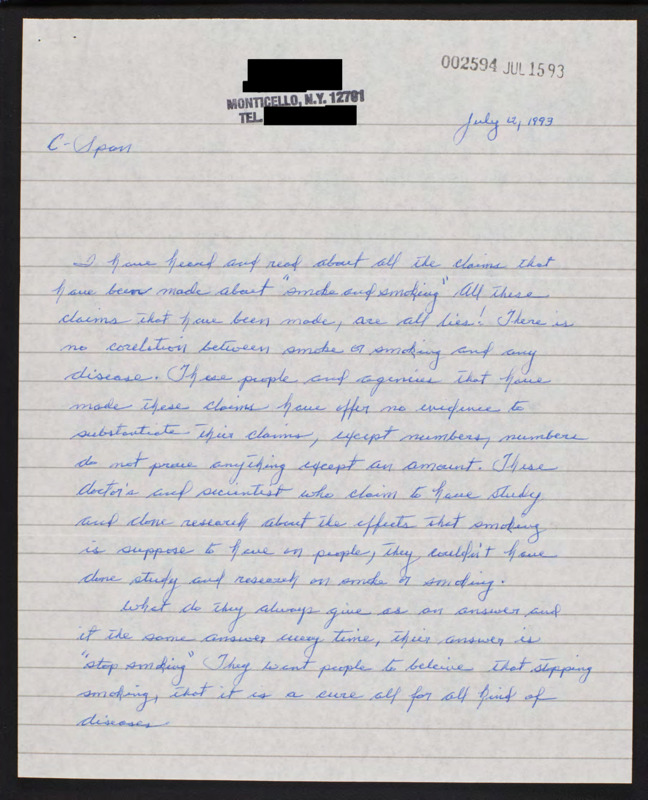 002594 JUL 15 93
MONTICELLO, N.Y. 12701
TEL.
July 12, 1993
C-Span
I have heard and read about all the claims that
have been made about "smoke and smoking" All these
claims that have been made, are all lies! There is
no corelation between smoke or smoking and any
disease. These people and agencies that have
made these claims have offer no evidence to
substantiate their claims, except numbers, numbers
do not prove anything except an amount. These
doctor's and scientist who claim to have study
and done research about the effects that smoking
is suppose to have on people, they couldn't have
done study and research on smoke or smoking.
What do they always give as an answer and
it the same answer every time, their answer is
"stop smoking" They want people to beleive that stopping
smoking, that it is a cure all for all kind of
diseases